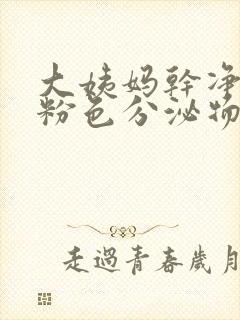 大姨妈幹净
粉色分泌物
走過青春歲月